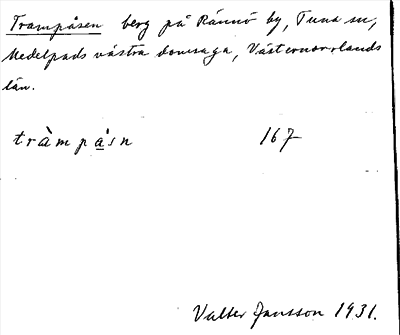 Trampåsen berg på Rännö by, Tuna sn,
Medelpads västra domsaga, Västernorrlands
län.
tràmpåsn 167
Valter Jansson 1931.